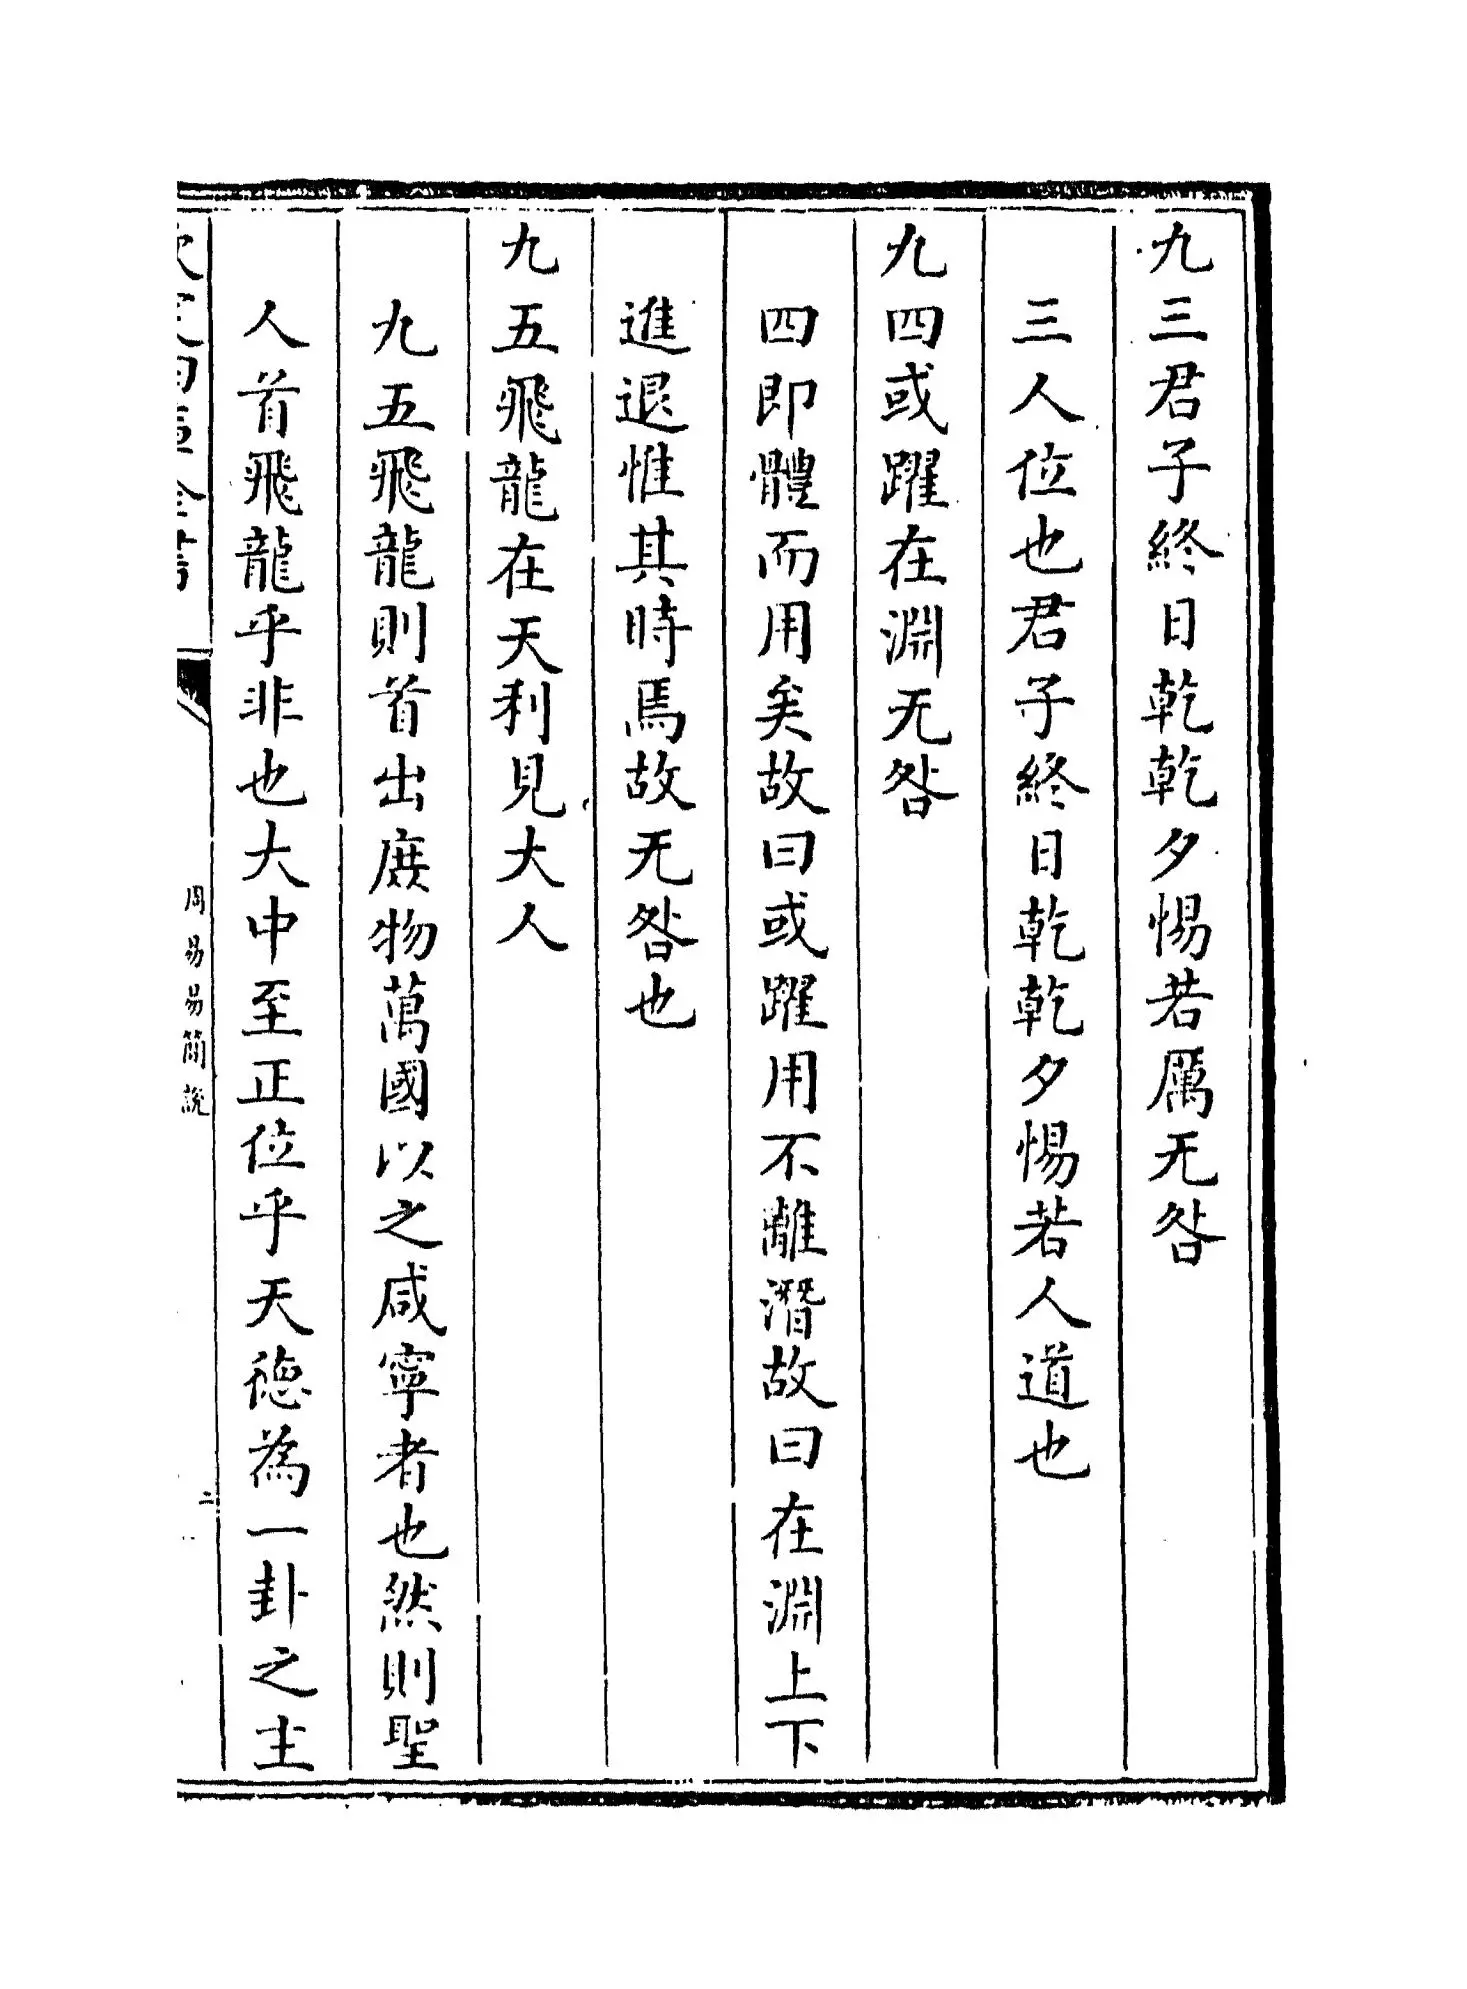 九三君子終日乾乾夕惕若厲无咎
三人位也君子終日乾乾夕惕若人道也
九四或躍在淵无咎
四即體而用矣故曰或躍用不離潛故曰在淵上下
進退惟其時焉故无咎也
九五飛龍在天利見大人
九五飛龍則首出庻物萬國以之咸寧者也然則聖
人首飛龍乎非也大中至正位乎天德為一卦之主
周易易簡說
二